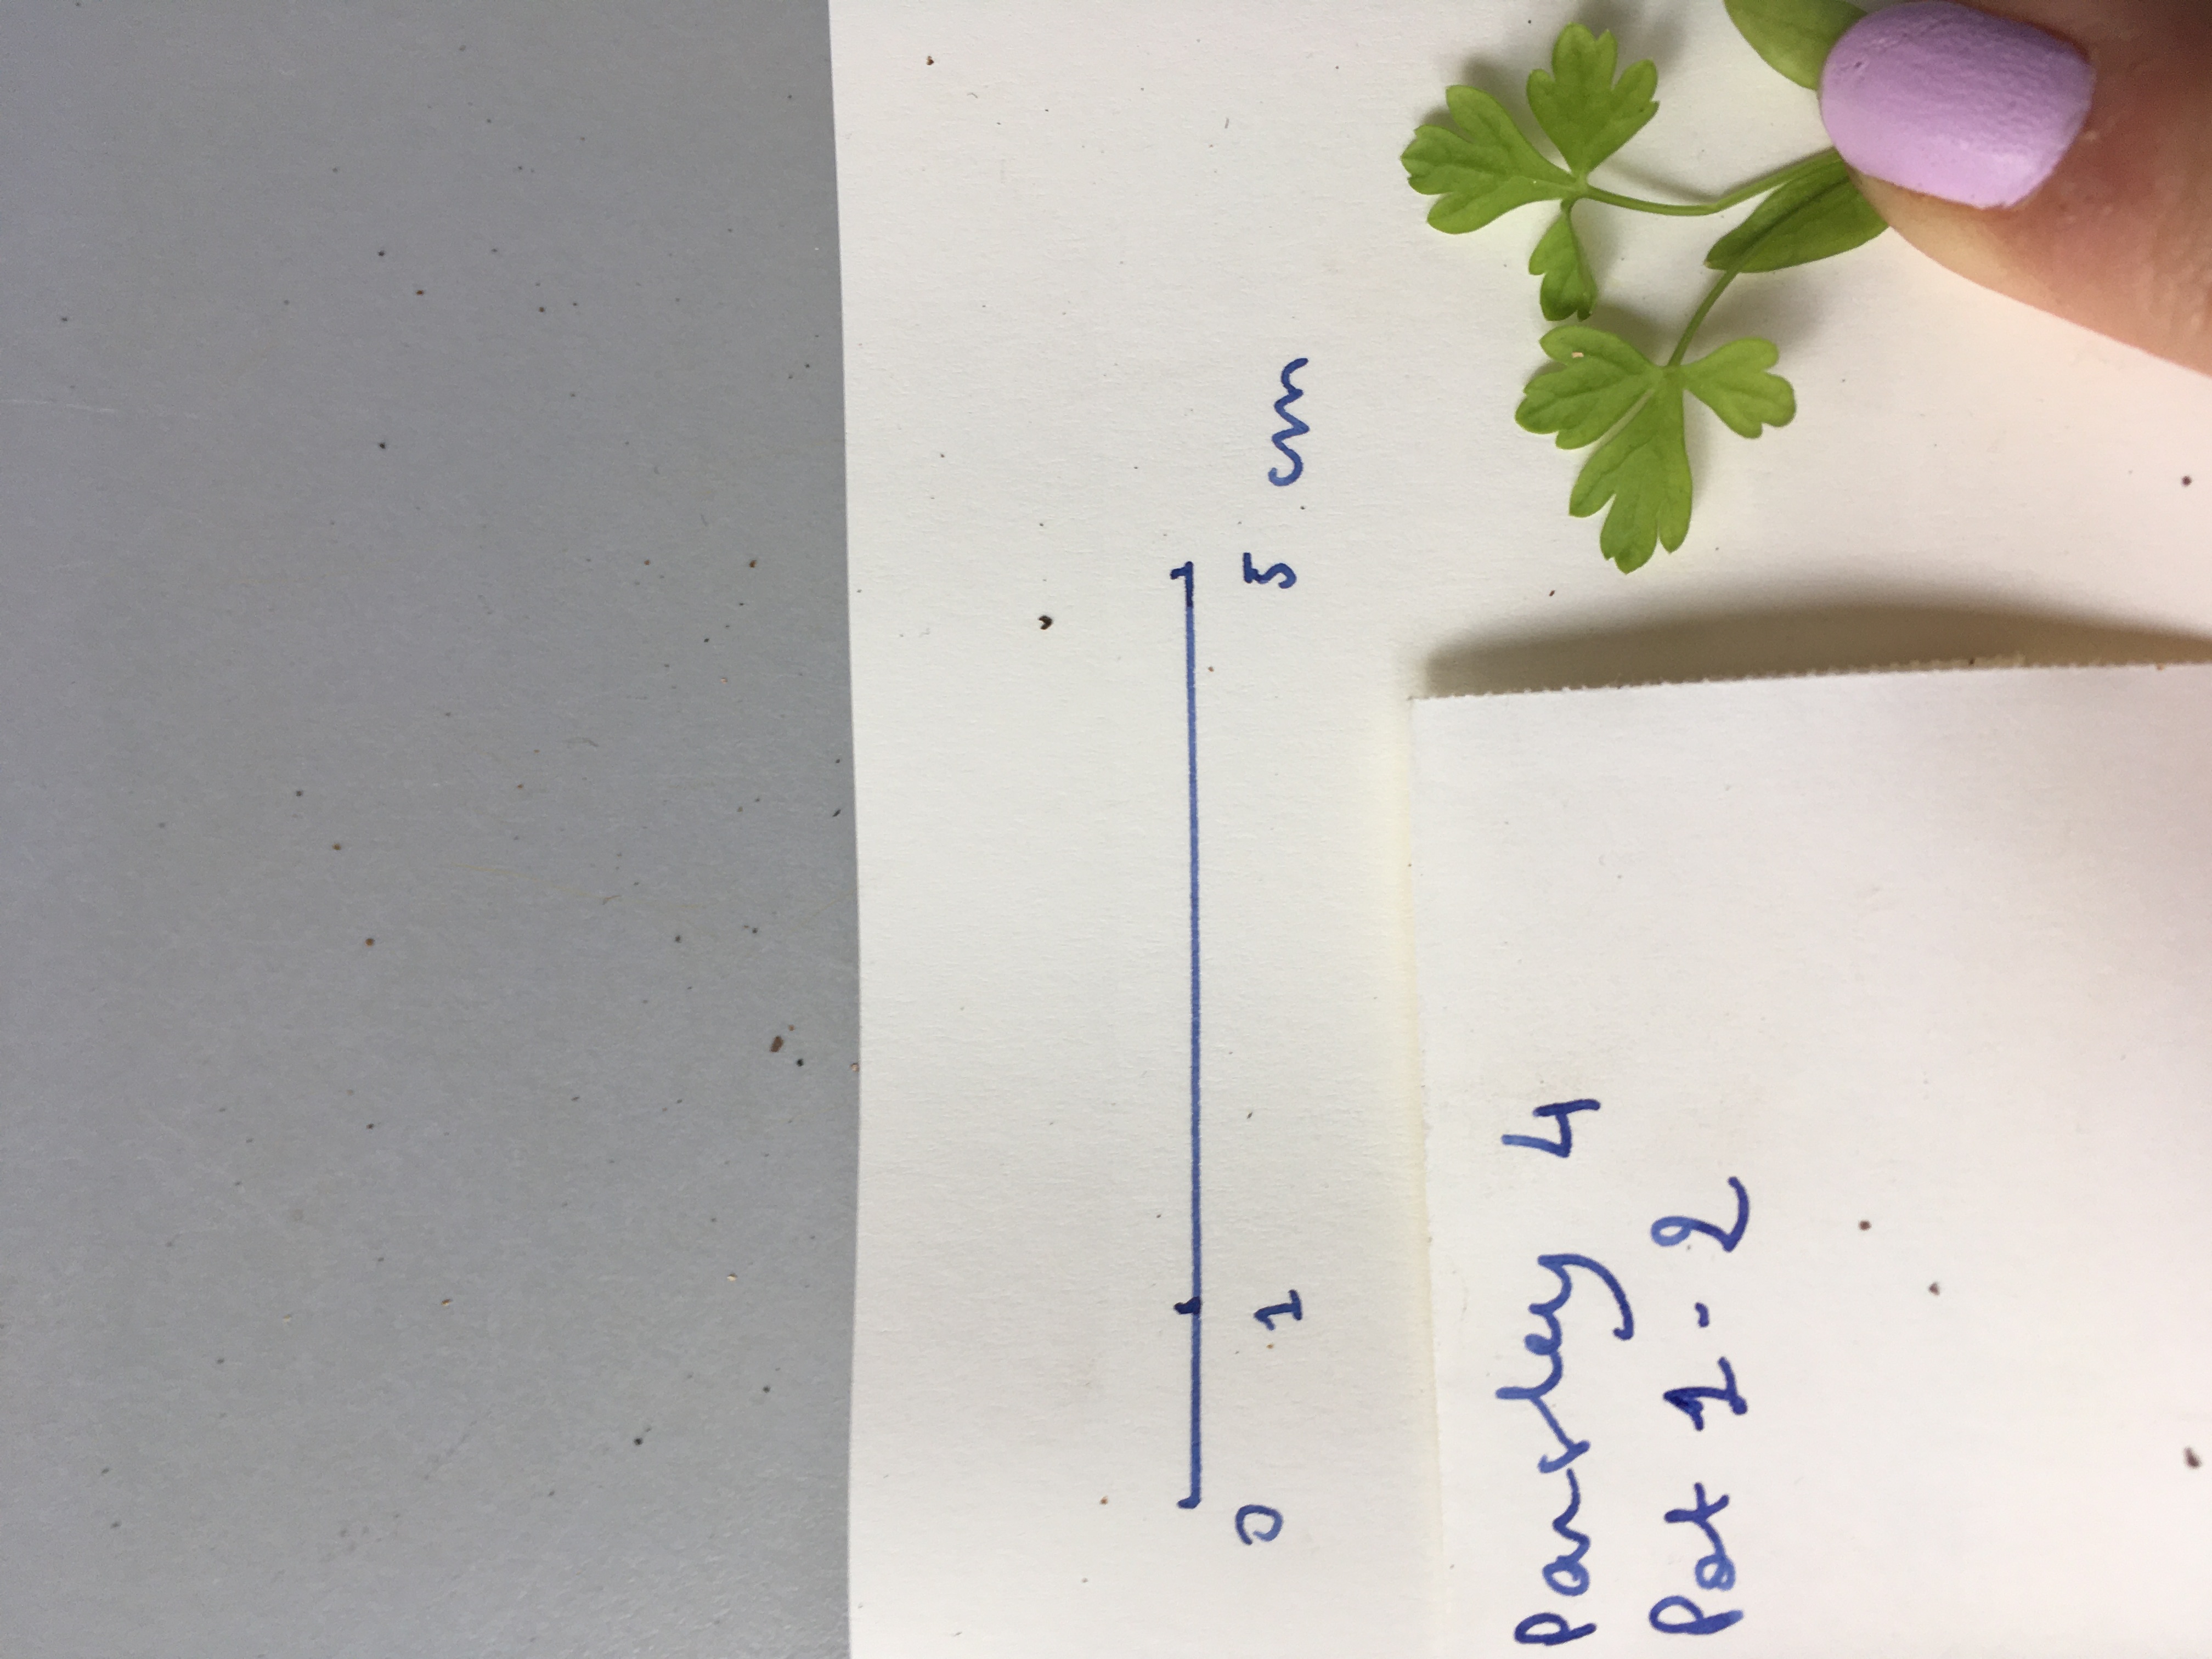 0 1 5 cm
Parsley 4
Pot 1-2